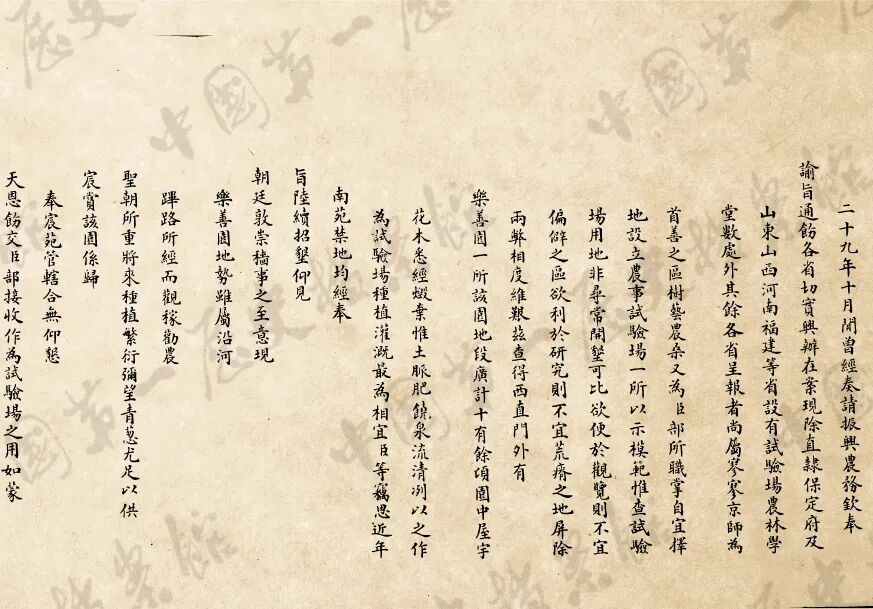 二十九年十月間曾經奏請振興農務欽奉
諭旨通飭各省切實興辦在案現除直隸保定府及
山東山西河南福建等省設有試驗場農林學
堂數處外其餘各省呈報者尚屬寥寥京師為
首善之區樹藝農桑又為臣部所職掌自宜擇
地設立農事試驗場一所以示模範惟查試驗
場用地非尋常開墾可比欲便於觀覽則不宜
偏僻之區欲利於研究則不宜荒瘠之地屏除
兩弊相度維艱茲查得西直門外有
樂善園一所該園地段廣計十有餘頃園中屋宇
花木悉經燬棄惟土脈肥饒泉流清冽以之作
為試驗場種植灌溉最為相宜臣等竊思近年
南苑禁地均經奉
旨陸續招墾仰見
朝廷敦崇穡事之至意現
樂善園地勢雖屬沿河
蹕路所經而觀稼勸農
聖朝所重將來種植繁衍彌望青蔥尤足以供
宸賞該園係歸
奉宸苑管轄合無仰懇
天恩飭交臣部接收作為試驗場之用如蒙
中國第一歷史檔案館